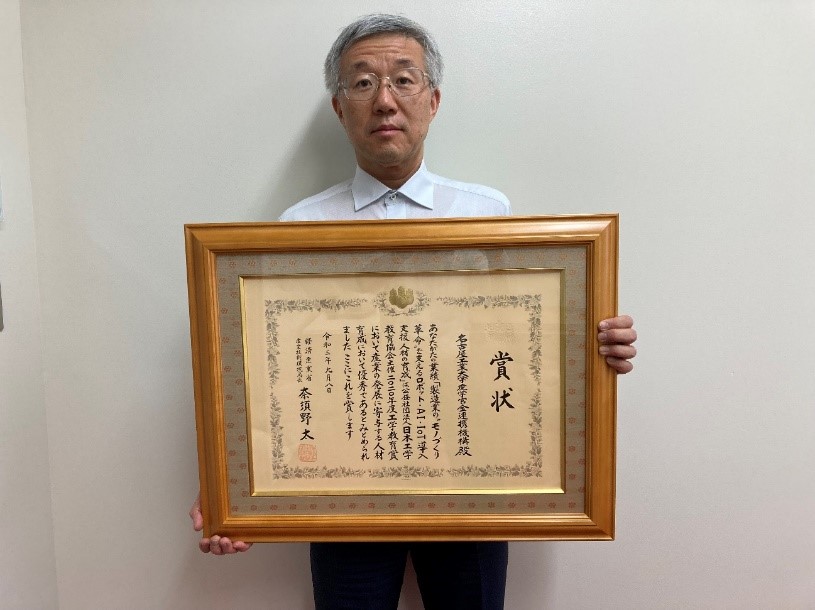 賞状
名古屋工業大学産学官金連携機構殿
あなたがたの業績「製造業の“モノづくり
革命”を支えるロボット・AI・IoT導入
支援人材の育成」は公益社団法人日本工学
教育協会主催二〇二〇年度工学教育賞
において産業の発展に寄与する人材
育成において優秀であるとみとめられ
ましたここにこれを賞します
令和三年九月八日
経済産業省
産業技術環境局長
奈須野太